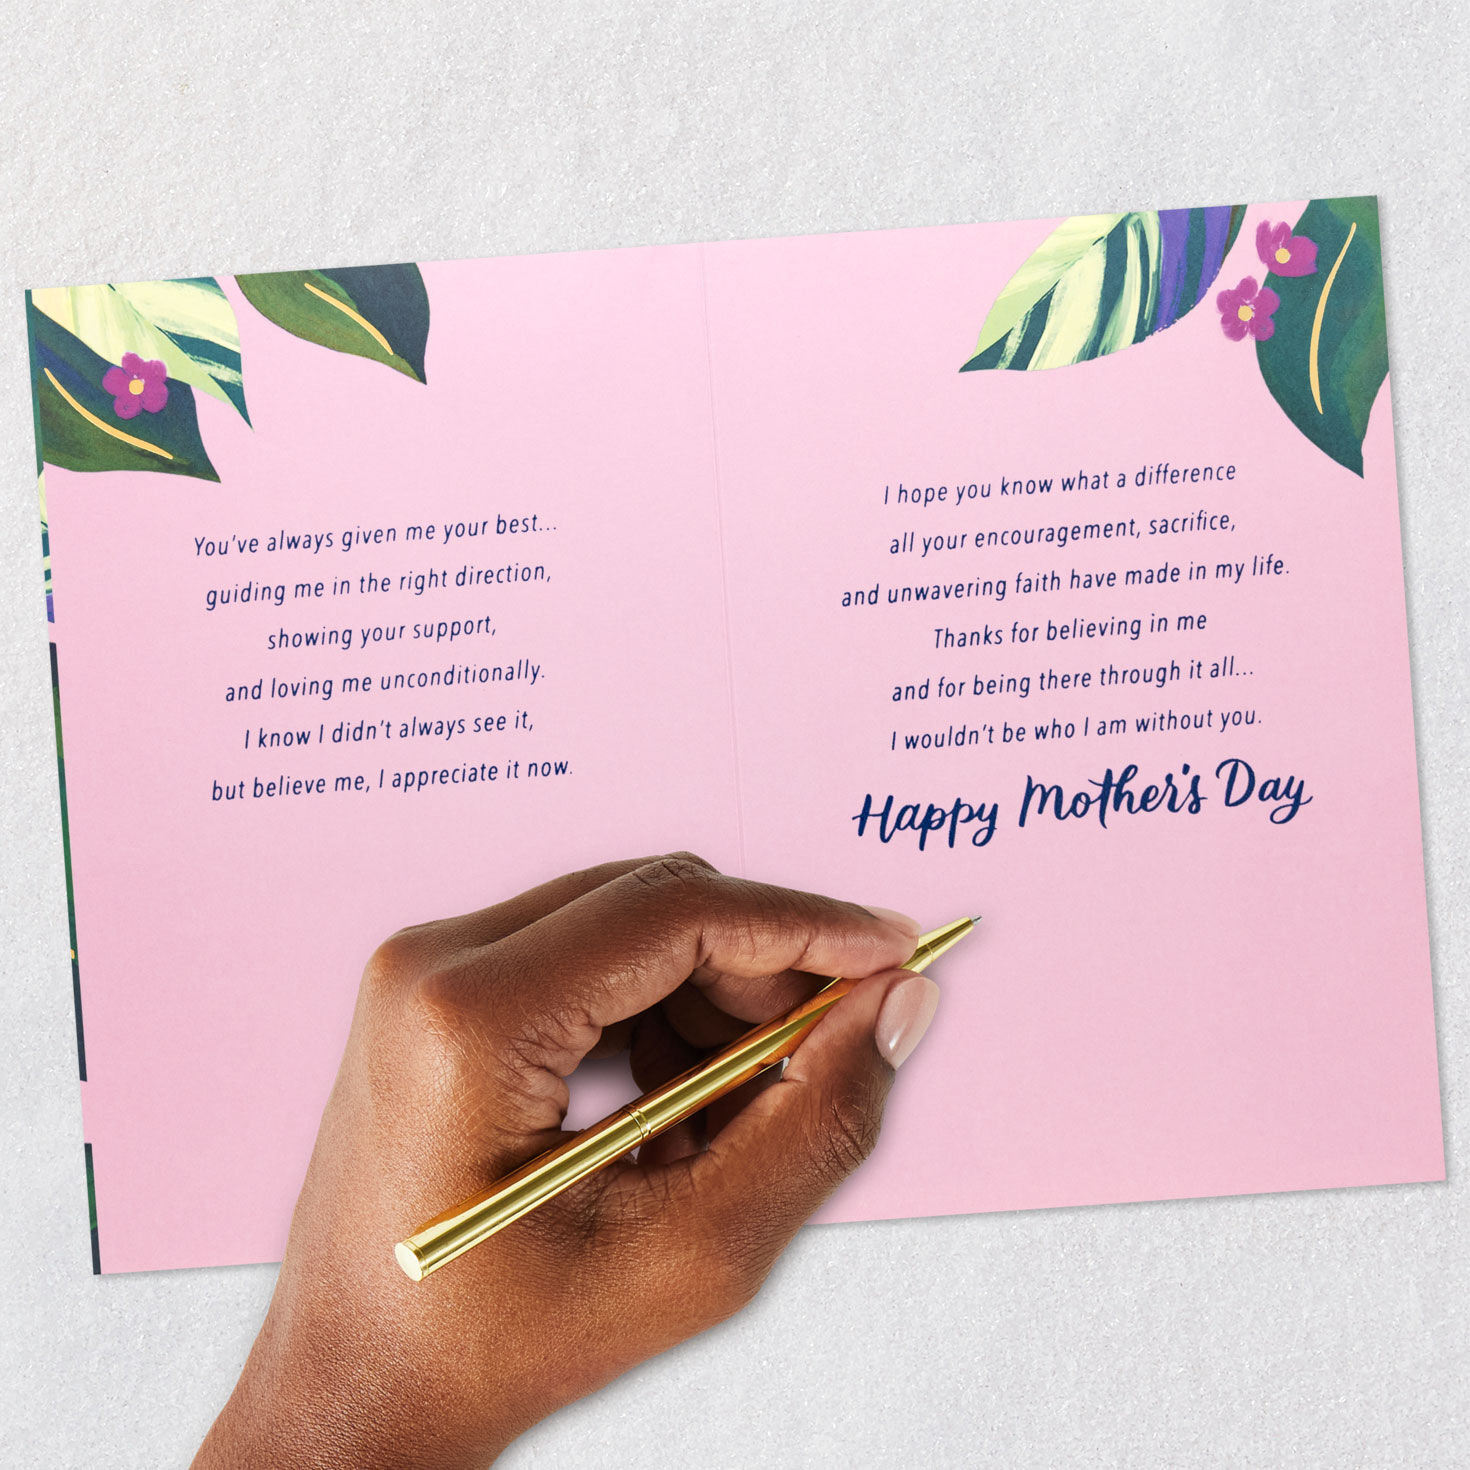 You've always given me your best...
guiding me in the right direction,
showing your support,
and loving me unconditionally.
I know I didn't always see it,
but believe me, I appreciate it now.
I hope you know what a difference
all your encouragement, sacrifice,
and unwavering faith have made in my life.
Thanks for believing in me
and for being there through it all...
I wouldn't be who I am without you.
Happy Mother's Day